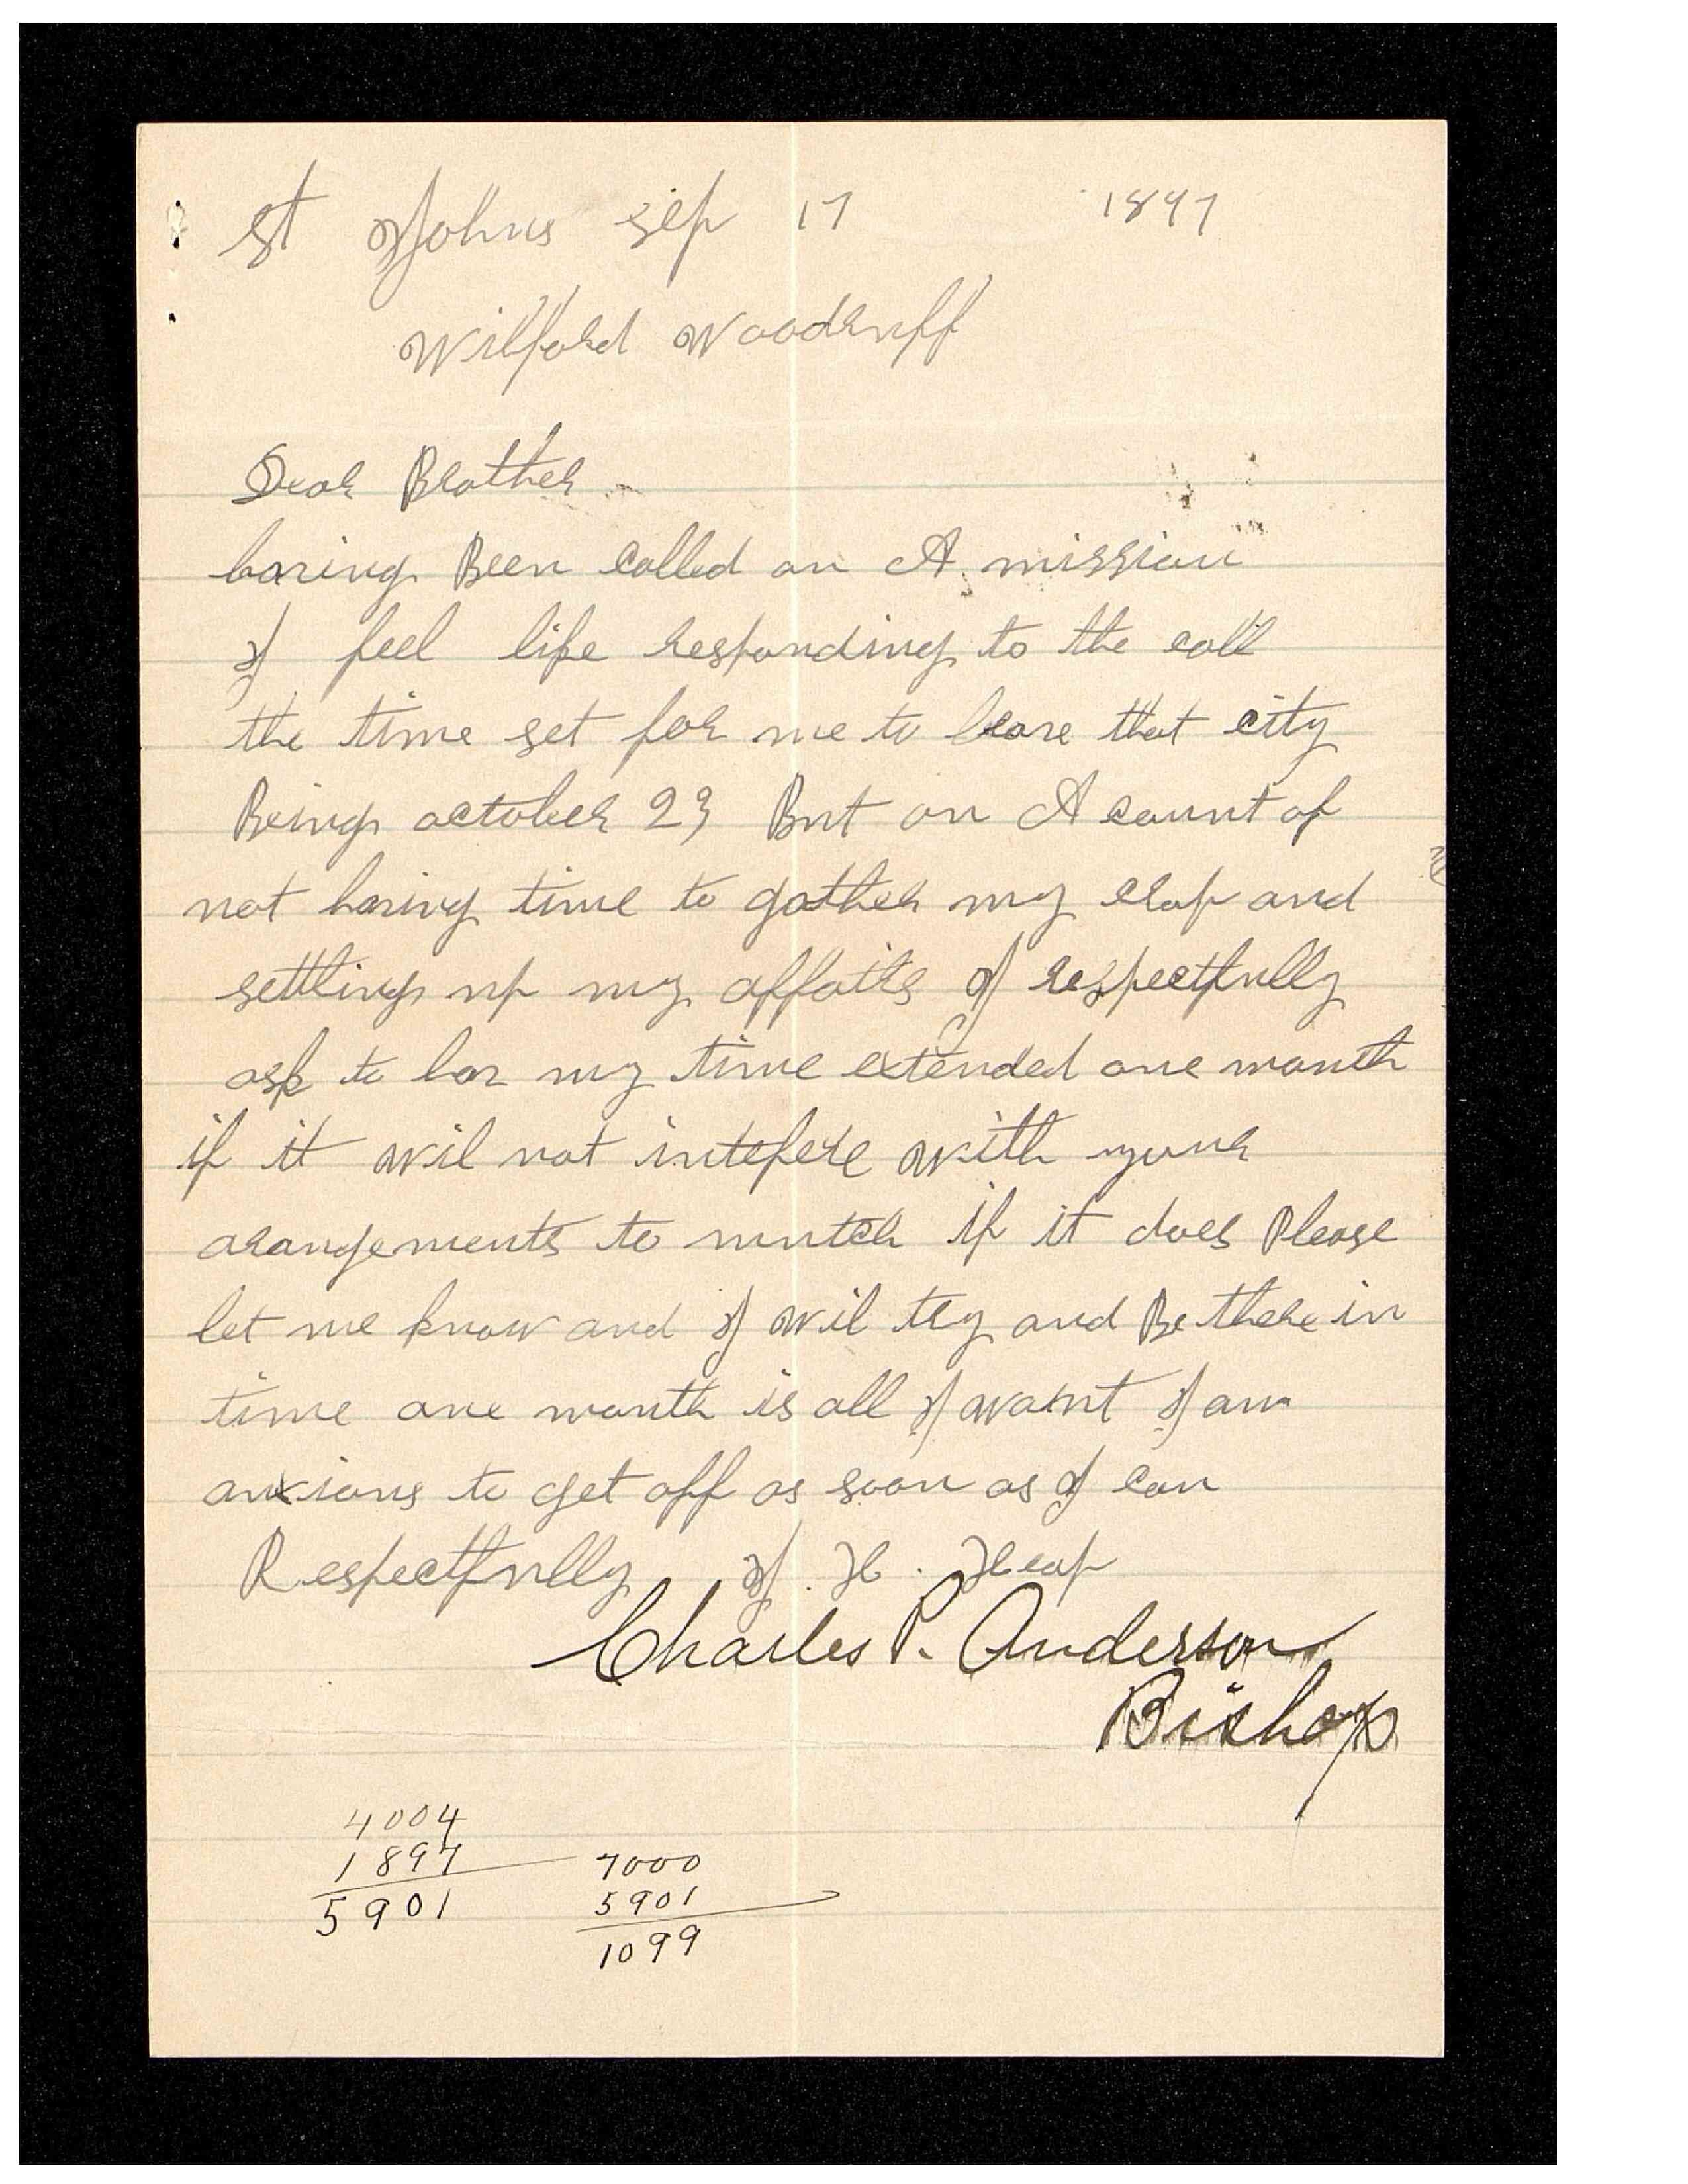 St Johns Sep 17 1897
Wilford Woodruff
Dear Brother
having Been called on A mission
I feel like responding to the call
the time set for me to leave that city
Being october 23 But on A count of
not having time to gather my crop and
settling up my affairs I respectfully
ask to hav my time extended one month
if it wil not intefere with your
arangements to mutch if it does Please
let me know and I wil try and Be there in
time one month is all I want I am
anxious to get off as soon as I can
Respectfully J. H. Heap
Charles P. Anderson
Bishop
4004
1897 7000
5901 5901
1099